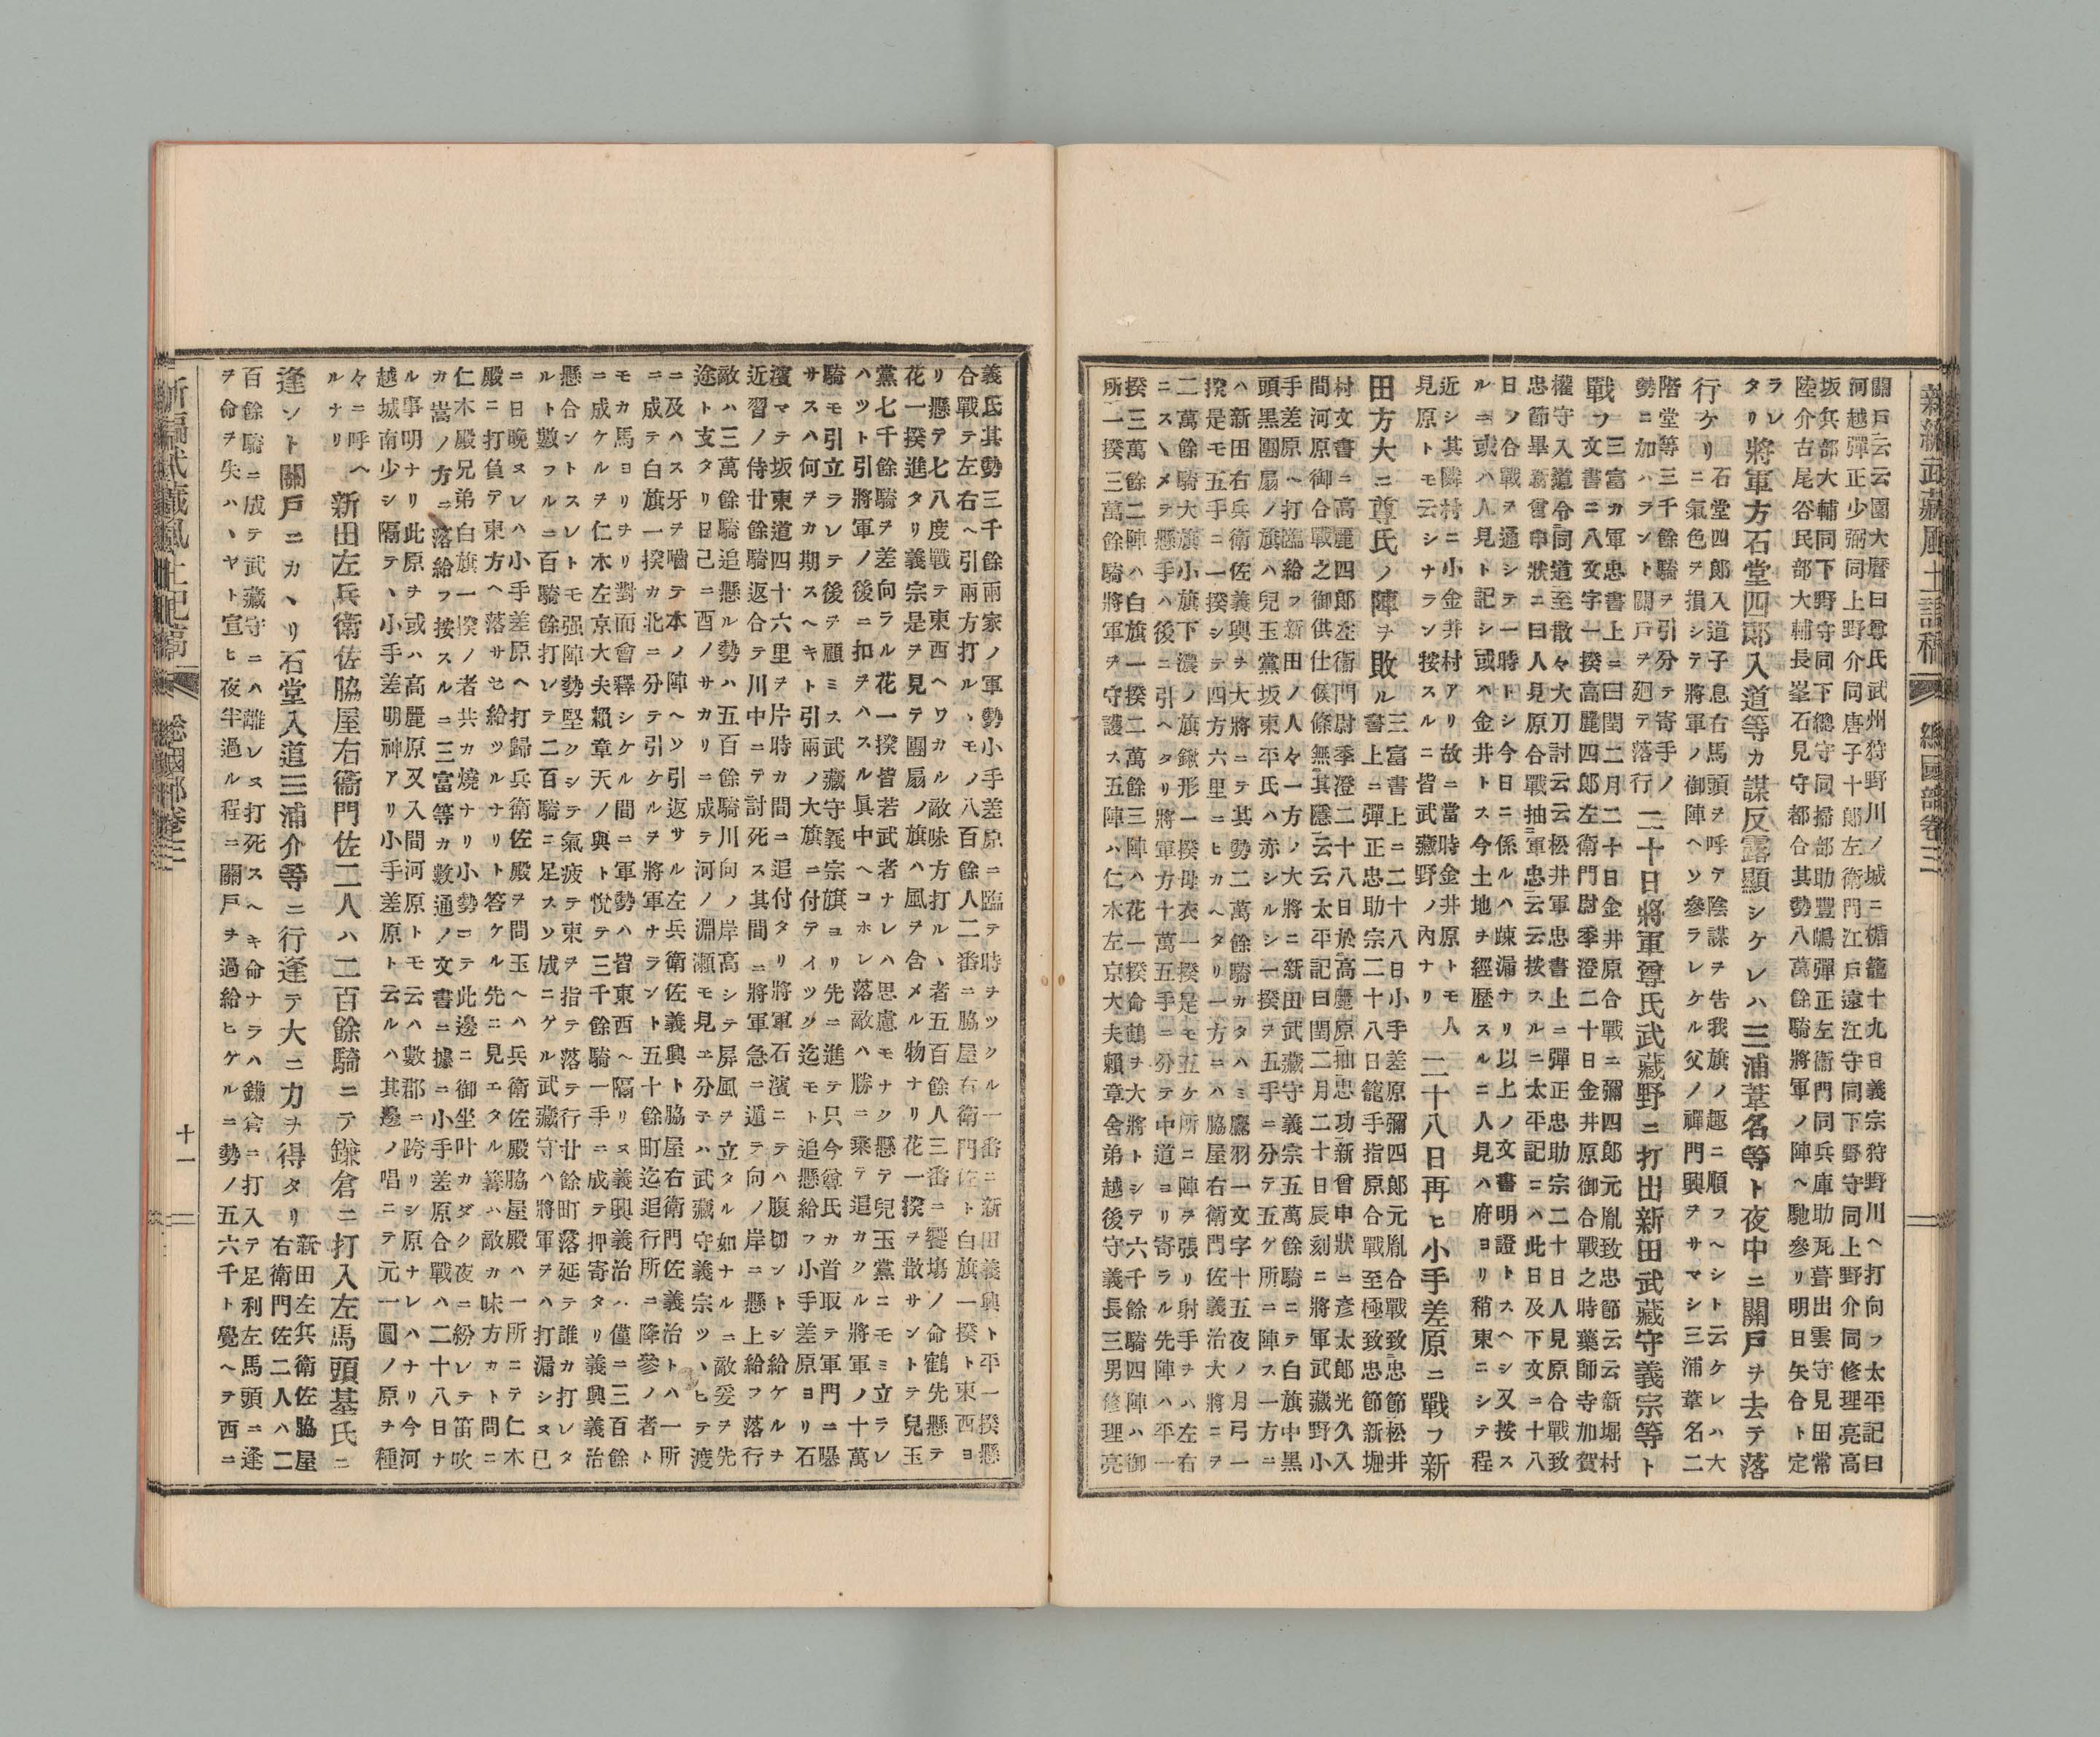 新編武藏風土記稿　總國部卷三
關戸云云園大暦曰尊氏武州狩野川ノ城ニ楯籠十九日義宗狩野川ヘ打向フ太平記曰
河越彈正少弼同上野介同唐子十郎左衛門江戸遠江守同下野守同上野介同修理亮高
坂兵部大輔同下野守同下總守同掃部助豐嶋彈正左衛門同兵庫助瓦葺出雲守見田常
陸介古尾谷民部大輔長峯石見守都合其勢八萬餘騎將軍ノ陣ヘ馳參リ明日矢合ト定
ラレ
タリ將軍方石堂四郎入道等カ謀反露顯シケレハ三浦葦名等ト夜中ニ關戸ヲ去テ落
行ケリ石堂四郎入道子息右馬頭ヲ呼テ陰謀ヲ告我旗ノ趣ニ順フヘシト云ケレハ大
ニ氣色ヲ損シテ將軍ノ御陣ヘソ參ラレケル父ノ禪門興ヲサマシ三浦葦名二
階堂等三千餘騎ヲ引分テ寄手ノ
勢ニ加ハヲント關戸ヲ廻テ落行二十日將軍尊氏武藏野ニ打出新田武藏守義宗等ト
戰フ三富カ軍忠書上ニ曰閏二月二十日金井原合戰ニ彌四郎元胤致忠節云云新堀村
文書ニ八文字一揆高麗四郎左衛門尉季澄二十日金井原御合戰之時藥師寺加賀
權守入道令同道至散々大刀討云云松井軍忠書上ニ彈正忠助宗二十日人見原合戰致
忠節畢新曾申狀ニ曰人見原合戰抽軍忠云云按スルニ太平記ニハ此日及下文二十八
日ソ合戰ヲ通シテ一時トシ今日ニ係ルハ疎漏ナリ以上ノ文書明證トスヘシ又按ス
ルニ或ハ人見ト記シ或ハ金井トス今土地ヲ經歴スルニ人見ハ府ヨリ稍東ニシテ程
近シ其隣村ニ小金井村アリ故ニ當時金井原トモ人
見原トモ云シナラン按スルニ皆武藏野ノ內ナリ二十八日再ヒ小手差原ニ戰フ新
田方大ニ尊氏ノ陣ヲ敗ル三富書上ニ二十八日小手差原彌四郎元胤合戰致忠節松井
書上ニ彈正忠助宗二十八日籠手指原合戰至極致忠節新堀
村文書ニ高麗四郎左衛門尉季澄二十八日於高麗原抽忠功新曾申狀ニ彥太郎光久入
間河原御合戰之御供仕候條無其隱云云太平記曰閏二月二十日辰刻ニ將軍武藏野小
手差原ヘ打臨給フ新田ノ人々一方ノ大將ニ新田武藏守義宗五萬餘騎ニテ白旗中黒
頭黑團扇ノ旗ハ兒玉黨坂東平氏ハ赤シルシ一揆ヲ五手ニ分テ五ゲ所ニ陣ス一方ニ
ハ新田右兵衛佐義興ヲ大將ニテ其勢二萬餘騎カタハミ鷹羽一文字十五夜ノ月弓一
揆是モ五手ニ一揆シテ四方六里ニヒカヘタリ一方ニハ脇屋右衛門佐義治大將ニヲ
二萬餘騎大旗小旗下濃ノ旗鍬形一揆母衣一揆是モ五ケ所ニ陣ヲ張リ射手ヲハ左右
ニスヽメヲ懸手ハ後ニ引ヘタリ將軍方十萬五手ニ分テ中道ヨリ寄ラル先陣ハ平一
揆三萬餘二陣ハ白旗一揆二萬餘三陣ハ花一揆命鶴ヲ大將トシテ六千餘騎四陣ハ御
所一揆三萬餘騎將軍ヲ守護ス五陣ハ仁木左京大夫賴章舍弟越後守義長三男修理亮
義氏其勢三千餘兩家ノ軍勢小手差原ニ臨テ時ヲツクル一番ニ新田義興ト平一揆懸
合戰テ左右ヘ引兩方打ルヽモノ八百餘人二番ニ脇屋右衛門佐ト白旗一揆ト東西ヨ
リ懸テ七八度戰テ東西ヘワカル敵味方打ルヽ者五百餘人三番ニ饗塲ノ命鶴先懸テ
花一揆進タリ義宗是ヲ見テ團扇ノ旗ハ風ヲ含メル物ナリ花一揆ヲ散サントテ兒玉
黨七千餘騎ヲ差向ラル花一揆皆若武者ナレハ思慮モナク懸テ兒玉黨ニモミ立ラレ
ハツト引將軍ノ後ニ扣ヲハスル眞中ヘコホレ落敵ハ勝ニ乘テ追カクル將軍ノ十萬
騎モ引立ラレテ後ヲ顧ミス武藏守義宗旗ヨリ先ニ進テ只今尊氏カ首取テ軍門ニ曝
サスハ何ヲカ期スヘキト引兩ノ大旗ニ付テイツク迄モト追懸給フ小手差原ヨリ石
濱マテ坂東道四十六里ヲ片時カ間ニ追付タリ將軍石濱ニテハ腹切ントシ給ケルヲ
近習ノ侍廿餘騎返合テ川中ニテ討死ス其間ニ將軍急ニ遁テ向ノ岸ニ懸上給フ落行
敵ハ三萬餘騎追懸ル勢ハ五百餘騎川向ノ岸高シテ屏風ヲ立タル如ナルニ敵爰ヲ先
途ト支タリ日已ニ酉ノサカリニ成テ河ノ淵瀨モ見エ分テハ武藏守義宗ツヽヒテ渡
ニ及ハス牙ヲ嚙テ本ノ陣ヘソ引返サル左兵衛佐義興ト脇屋右衛門佐義治トハ一所
ニ成テ白旗一揆カ北ニ分テ引ケルヲ將軍ナラント五十餘町迄追行所ニ降參ノ者ト
モカ馬ヨリヲリ對面會釋シケル間ニ軍勢ハ皆東西ヘ隔リヌ義興義治ハ僅ニ三百餘
ニ成ケルヲ仁木左京大夫賴章天ノ與ト悅テ三千餘騎一手ニ成テ押寄タリ義興義治
懸合ントスレトモ强陣勢堅クシテ氣疲テ東ヲ指テ落テ行廿餘町落延テ誰カ打レタ
ルト數フルニ百騎餘打レテ二百騎ニ足スソ成ニケル武藏守ハ將軍ヲハ打漏シヌ已
ニ日晩ヌレハ小手差原ヘ打歸兵衛佐殿ヲ問玉ヘハ兵衛佐殿脇屋殿ハ一所ニテ仁木
殿ニ打負テ東方ヘ落サセ給ツルナリト答ケル先ニ見エタル篝ハ敵カ味方カト問ニ
仁木殿兄弟白旗一揆ノ者共カ燒ナリ小勢ニテ此邊ニ御坐叶カダク夜ニ紛レテ笛吹
カ嵩ノ方ニ落給フ按スルニ三富等カ數通ノ文書ニ據ニ小手差原合戰ハ二十八日ナ
ル事明ナリ此原ヲ或ハ高麗原又入間河原トモ云ハ數郡ニ跨リシ原ナレハナリ今河
越城南少シ隔テヽ小手差明神アリ小手差原ト云ルハ其邊ノ唱ニテ元一圓ノ原ヲ種
々ニ呼ヘ
ルナリ新田左兵衛佐脇屋右衞門佐二人ハ二百餘騎ニテ鎌倉ニ打入左馬頭基氏ニ
逢ント關戸ニカヽリ石堂入道三浦介等ニ行逢テ大ニ力ヲ得タリ新田左兵衛佐脇屋
右衛門佐二人ハ二
百餘騎ニ成テ武藏守ニハ離レヌ打死スヘキ命ナラハ鎌倉ニ打入テ足利左馬頭ニ逢
ヲ命ヲ失ハヽヤト宣ヒ夜半過ル程ニ關戸ヲ過給ヒケルニ勢ノ五六千ト覺ヘヲ西ニ
新編武藏風土記稿　總國部卷三　十一